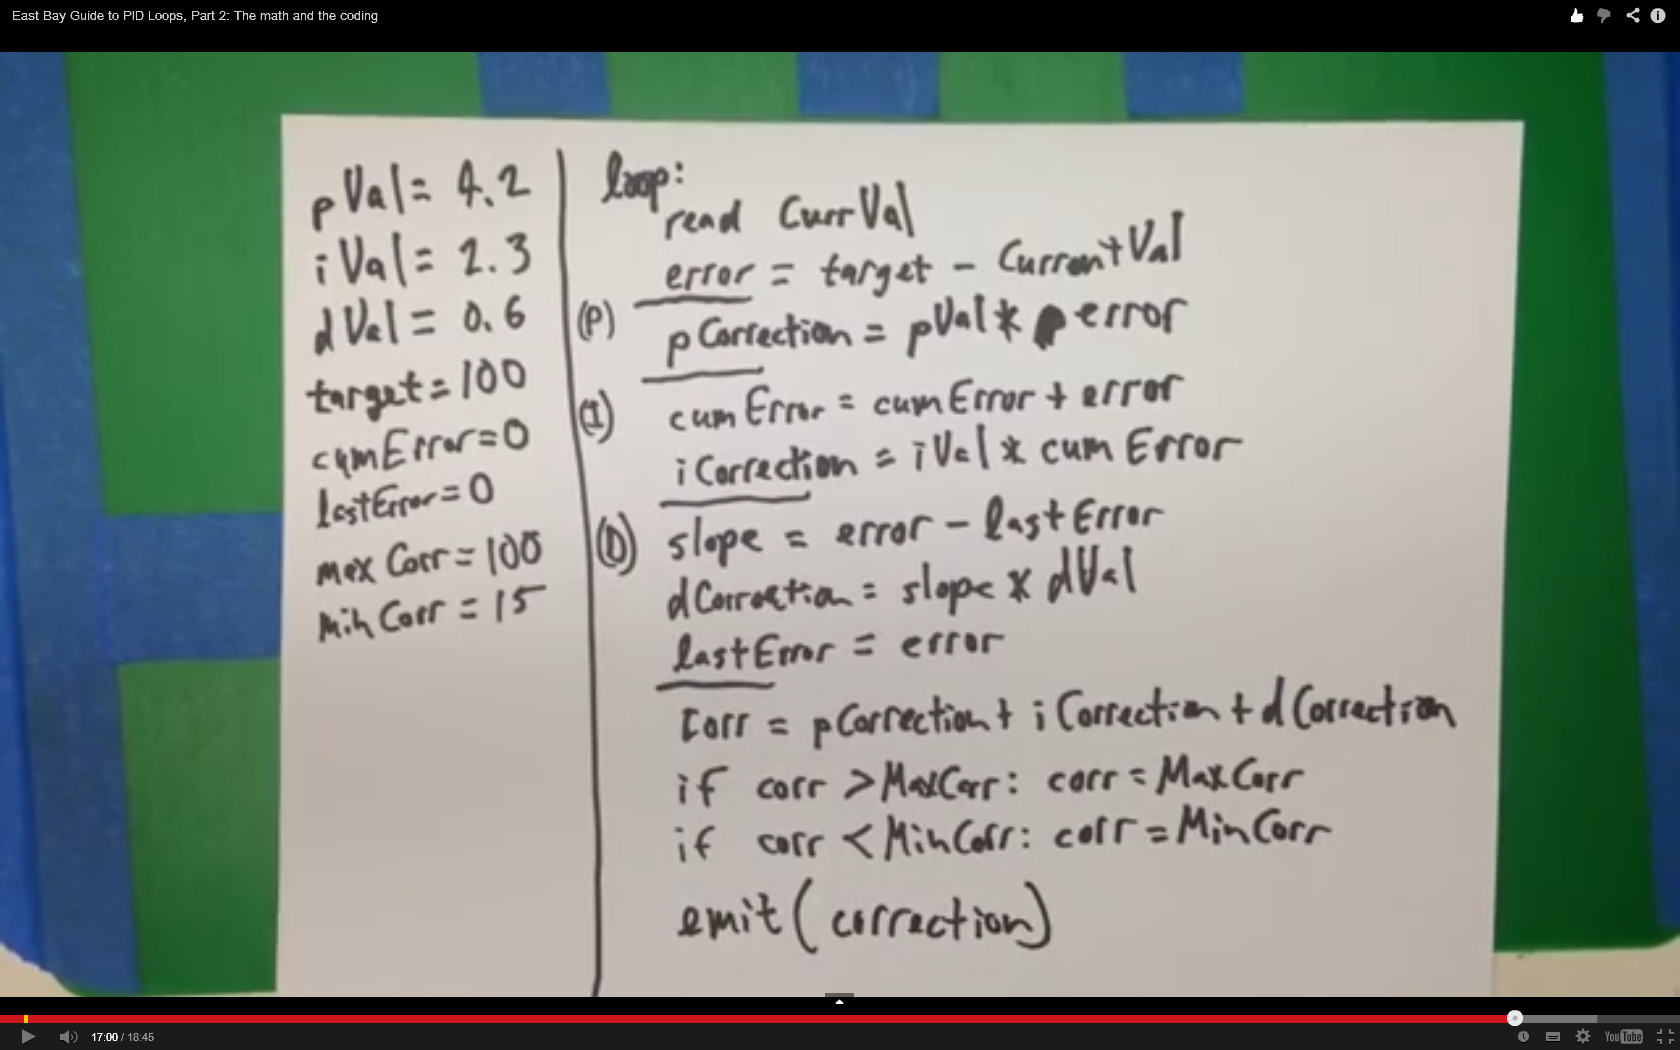 East Bay Guide to PID Loops, Part 2: The math and the coding
pVal = 4.2
iVal = 2.3
dVal = 0.6
target = 100
cumError = 0
lastError = 0
maxCorr = 100
minCorr = 15
loop:
read CurrVal
error = target - CurrentVal
(P)
pCorrection = pVal * error
(I)
cumError = cumError + error
iCorrection = iVal * cumError
(D)
slope = error - lastError
dCorrection = slope * dVal
lastError = error
Corr = pCorrection + iCorrection + dCorrection
if corr > MaxCorr: corr = MaxCorr
if corr < MinCorr: corr = MinCorr
emit (correction)
17:00 / 18:45
YouTube